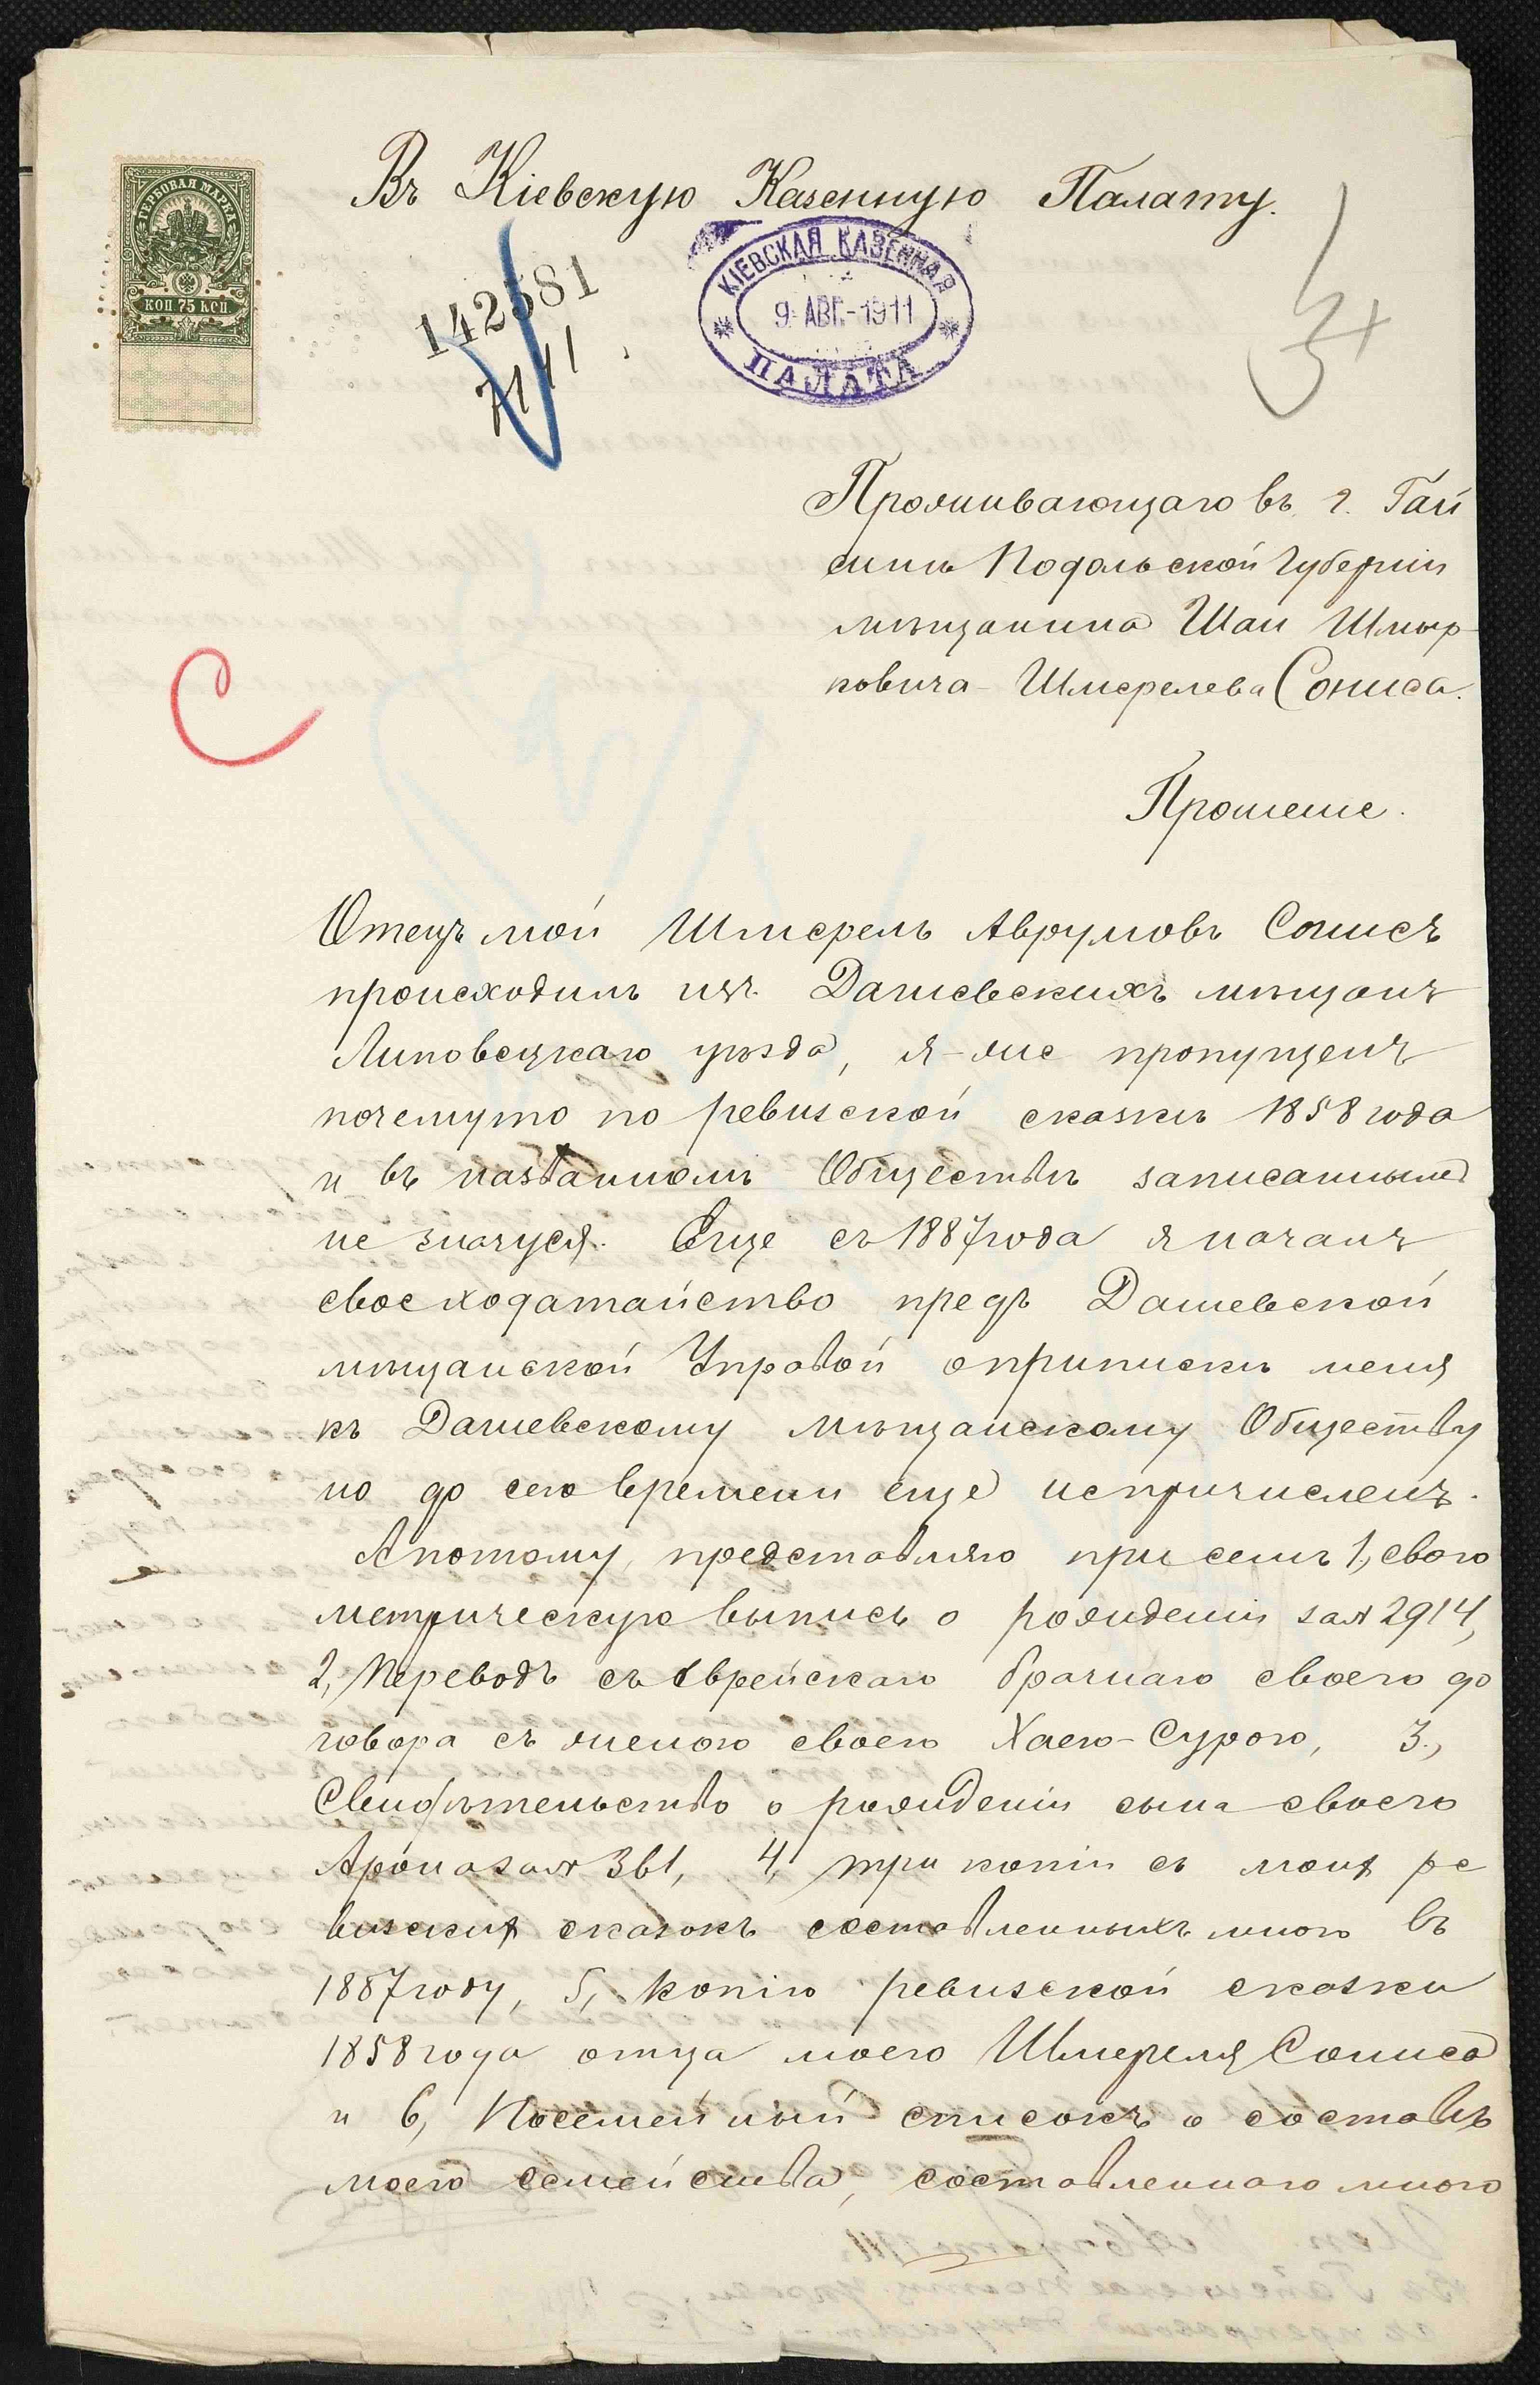 Въ Кіевскую Казенную Палату.
ГЕРБОВАЯ МАРКА
КОП 75 КОП
142581
КІЕВСКАЯ КАЗЕННАЯ
9 АВГ.-1911
ПАЛАТА
Проживающаго въ г. Гай
синѣ Подольской Губерніи
мѣщанина Шаи Шмер-
ковича-Шмерелева Сониса.
Прошеніе.
Отецъ мой Шмерель Аврумовъ Сонисъ
происходилъ изъ Дашевскихъ мѣщанъ
Липовецкаго уѣзда, я-же пропущенъ
почемуто по ревизской сказкѣ 1858 года
и въ названномъ Обществѣ записаннымъ
не значуся. Еще съ 1887 года я началъ
свое ходатайство предъ Дашевской
мѣщанской Управой о припискѣ меня
къ Дашевскому мѣщанскому Обществу
но до сего времени еще непричисленъ.
А потому, представляю при семъ 1, свою
метрическую выпись о рожденіи за № 2914,
2, Переводъ съ Еврейскаго брачнаго своего до
говора съ женою своею Хаею-Сурою, 3.,
Свидѣтельство о рожденіи сына своего
Арона за № 361, 4, три копіи съ моихъ ре
визскихъ сказокъ составленныхъ мною въ
1887 году, 5, копію ревизской сказки
1858 года отца моего Шмереля Сониса
и 6, Посемейный списокъ о составѣ
моего семейства, составленнаго мною